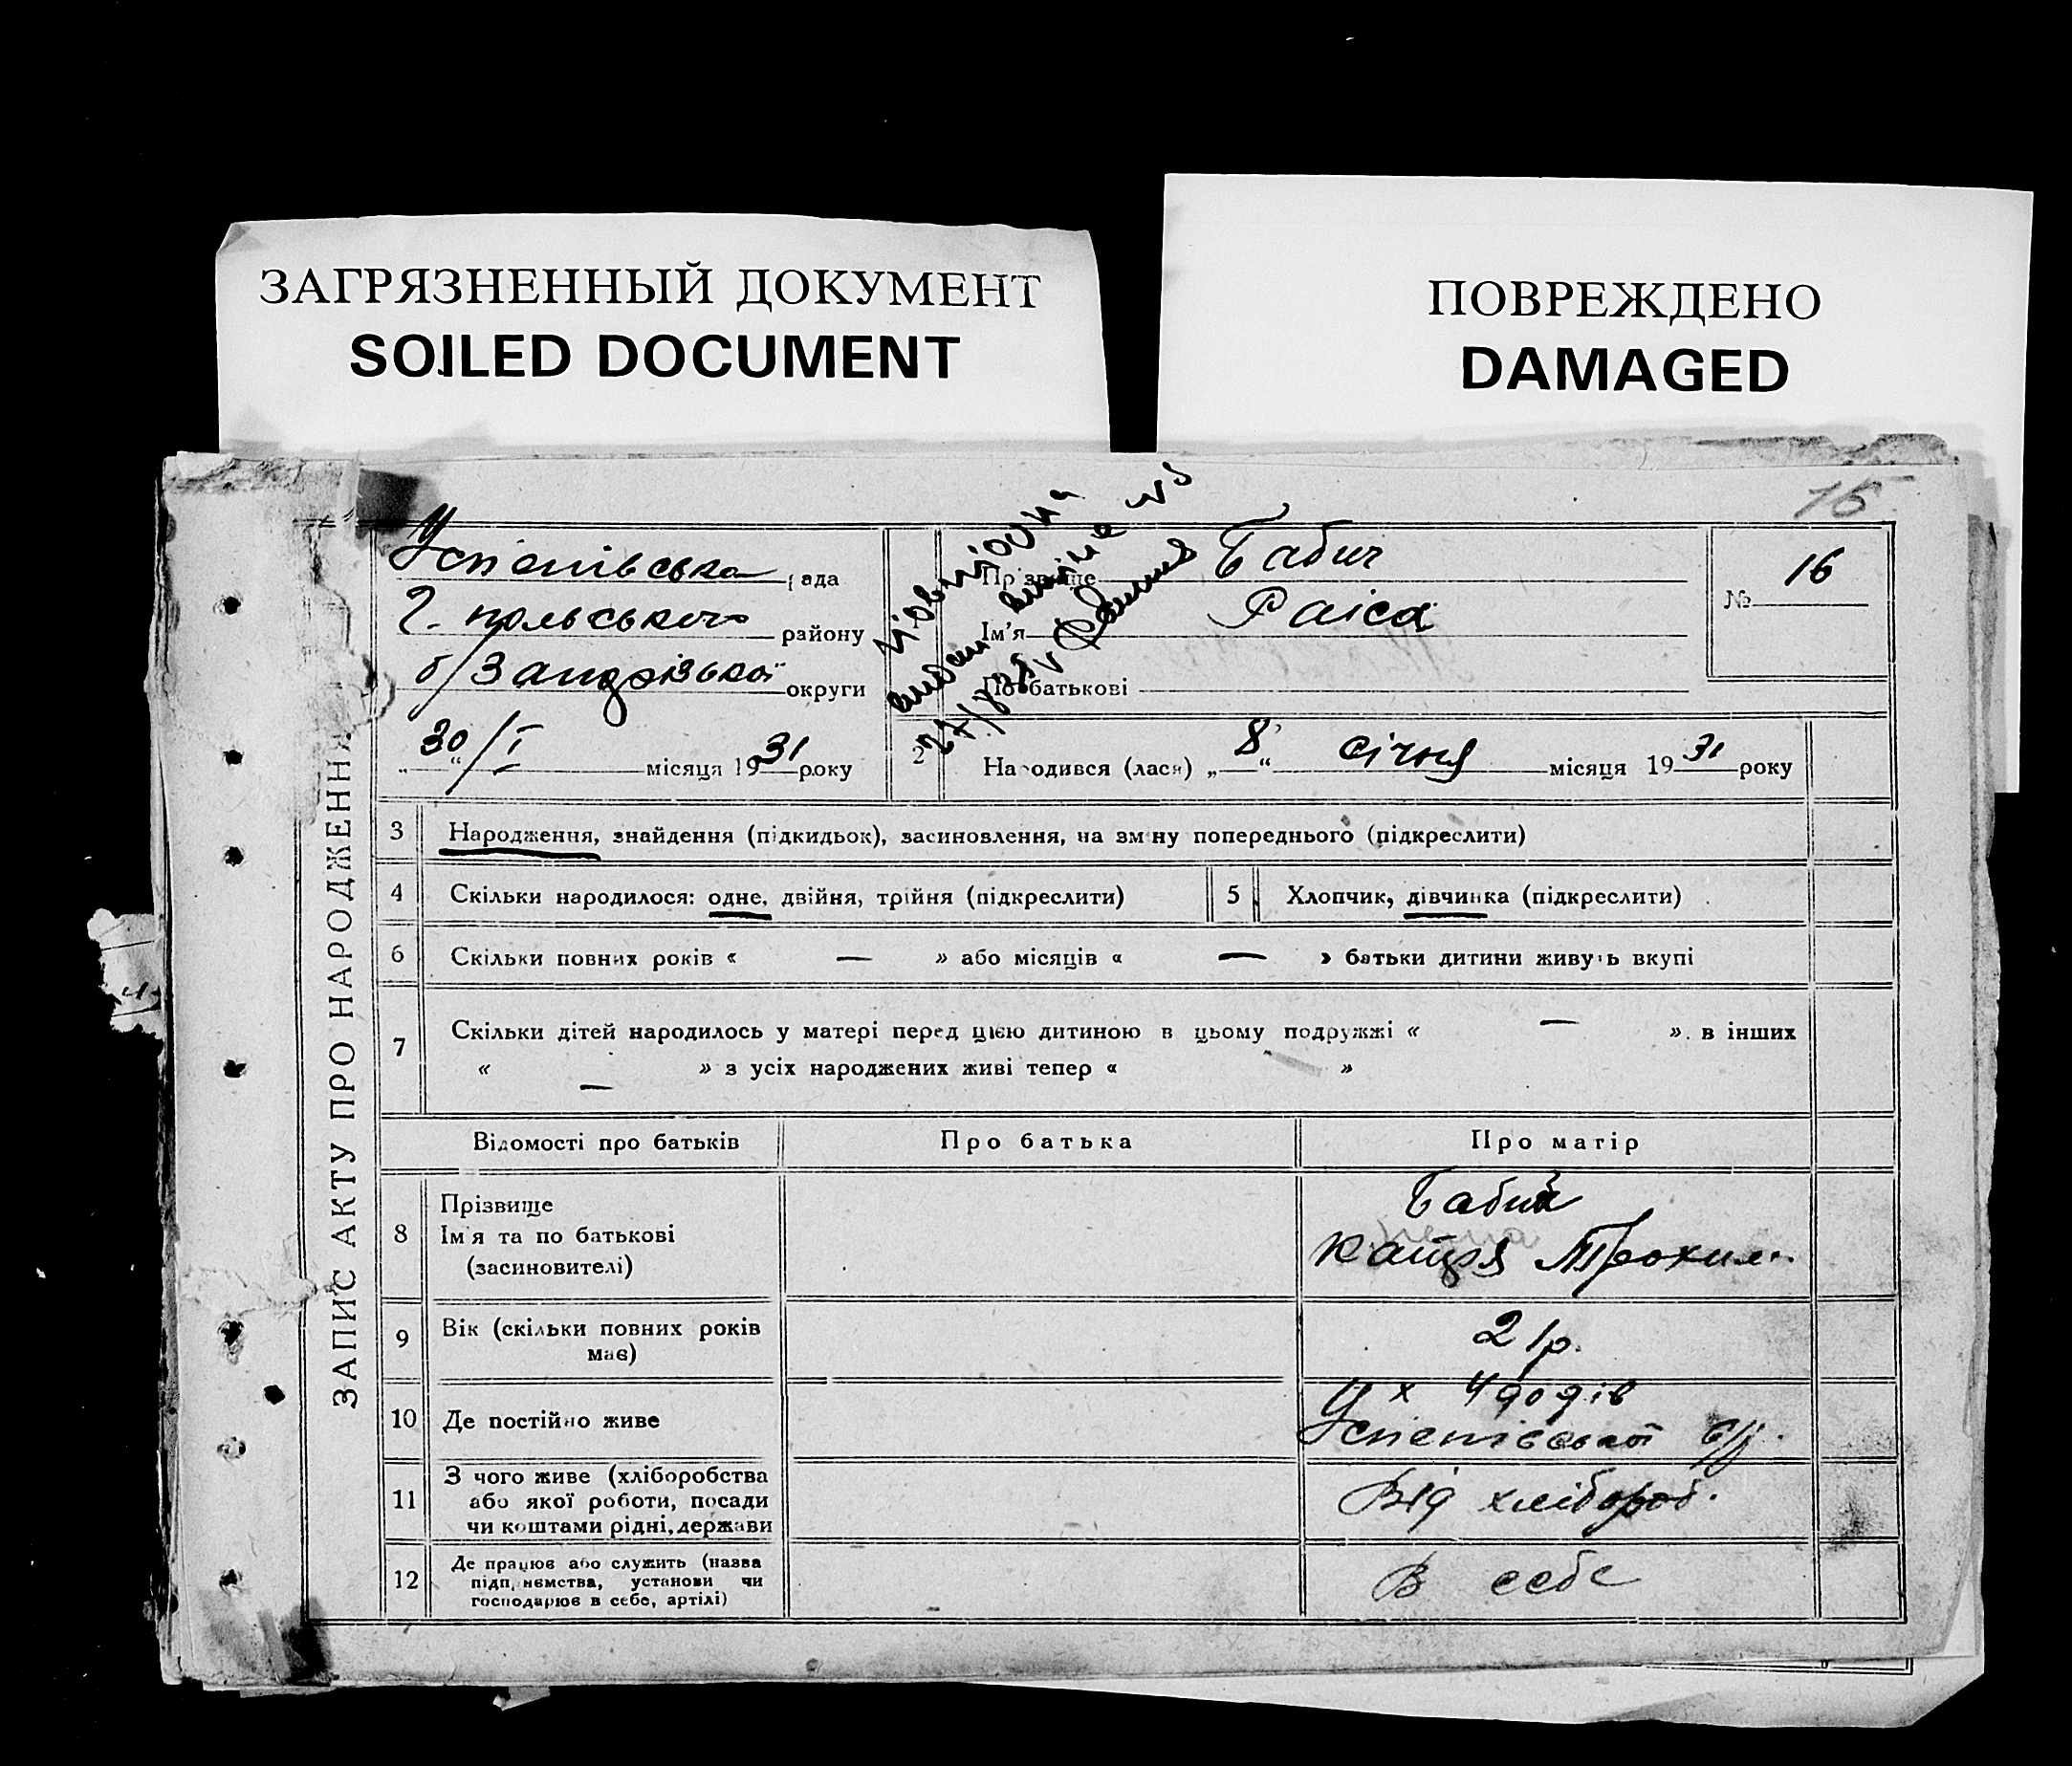 ЗАГРЯЗНЕННЫЙ ДОКУМЕНТ
SOILED DOCUMENT
ПОВРЕЖДЕНО
DAMAGED
15
ЗАПИС АКТУ ПРО НАРОДЖЕННЯ
Успенівська рада
Г. польського району
б/Запорізької округи
„30“/I місяця 1931 року
Прізвище Бабич
Ім'я Раїса
По батькові
№ 16
2 Народився (лася) „8“ січня місяця 1931 року
3 Народження, знайдення (підкидьок), засиновлення, на зміну попереднього (підкреслити)
4 Скільки народилося: одне, двійня, трійня (підкреслити)
5 Хлопчик, дівчинка (підкреслити)
6 Скільки повних років « — » або місяців « — » батьки дитини живуть вкупі
7 Скільки дітей народилось у матері перед цією дитиною в цьому подружжі « — ». в інших
« — » з усіх народжених живі тепер « »
Відомості про батьків Про батька Про матір
8 Прізвище
Ім'я та по батькові
(засиновителі)
Бабич
Катря Трохим.
9 Вік (скільки повних років
має)
21р.
10 Де постійно живе
Успенівської с/р.
11 З чого живе (хліборобства
або якої роботи, посади
чи коштами рідні, держави
Від хлібороб.
12 Де працює або служить (назва
підприємства, установи чи
господарює в себе, артілі)
В себе